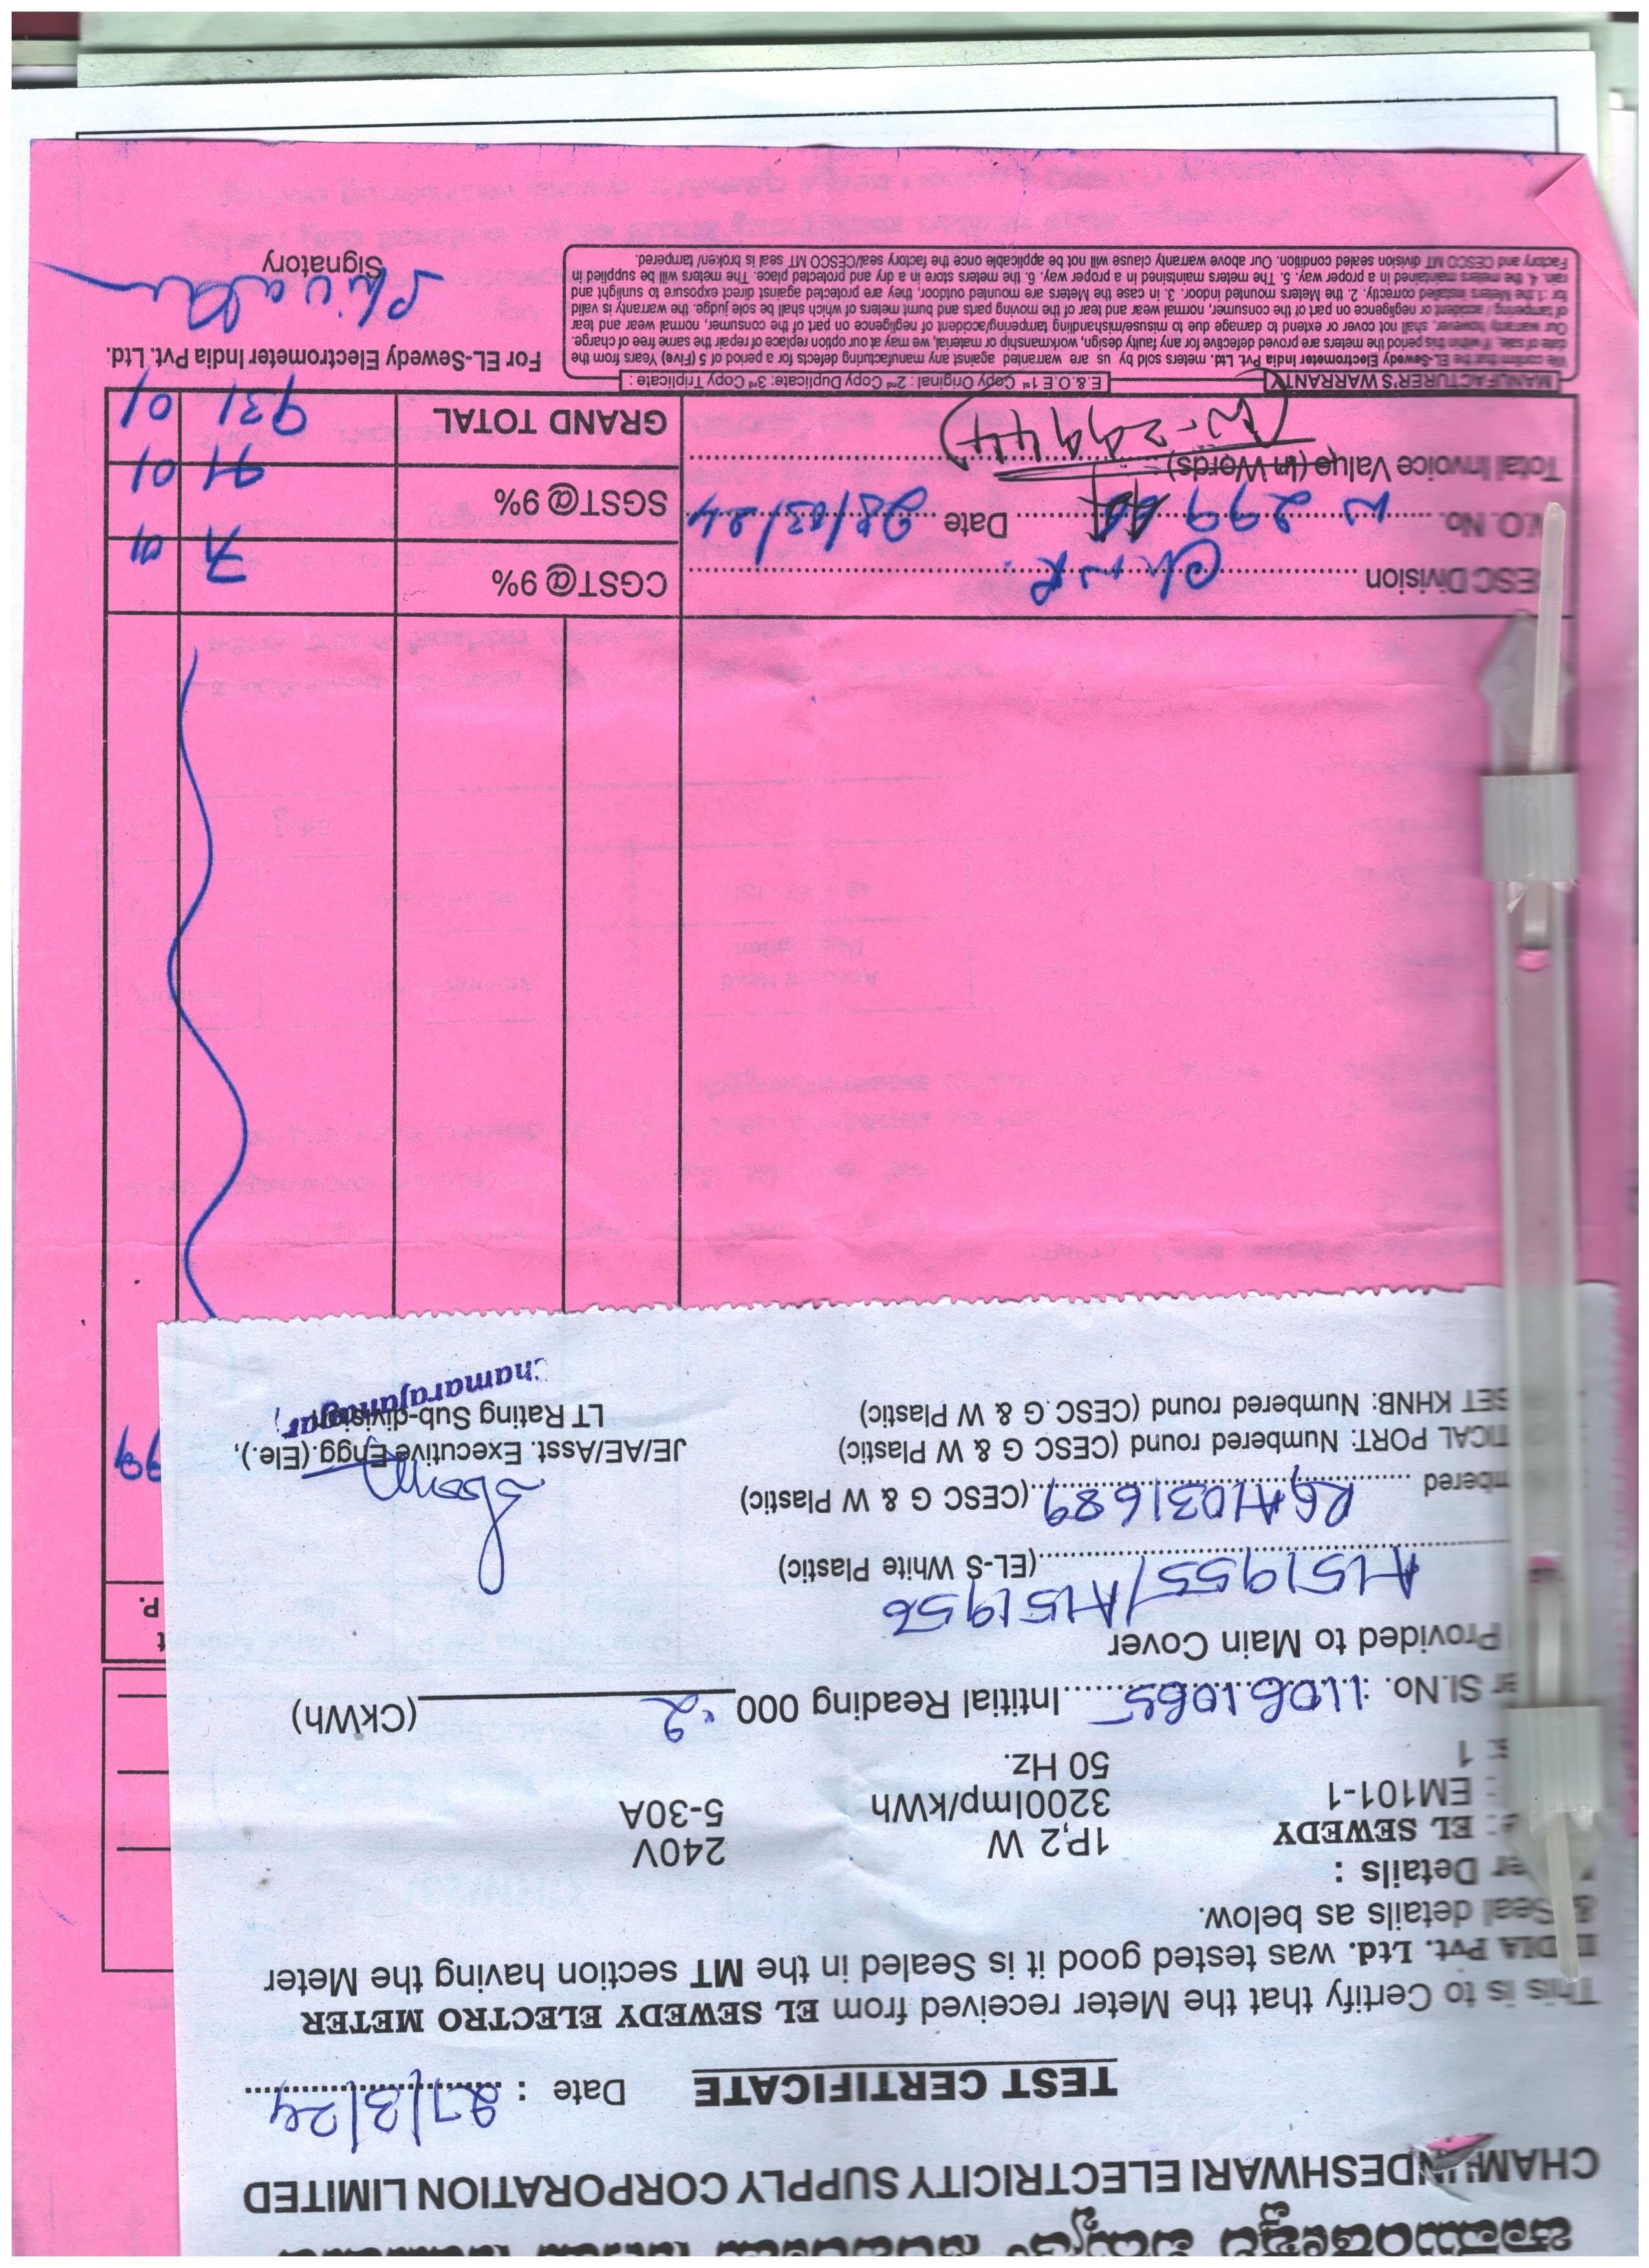 ಚಾಮುಂಡೇಶ್ವರಿ ವಿದ್ಯುತ್ ಸರಬರಾಜು ನಿಗಮ ನಿಯಮಿತ
CHAMUNDESHWARI ELECTRICITY SUPPLY CORPORATION LIMITED
TEST CERTIFICATE Date : 27/3/24
This is to Certify that the Meter received from EL SEWEDY ELECTRO METER
INDIA Pvt. Ltd. was tested good it is Sealed in the MT section having the Meter
& Seal details as below.
er Details :
e: EL SEWEDY 1P,2 W 240V
: EM101-1 3200Imp/kWh 5-30A
s: 1 50 Hz.
er Sl.No. : 11061065 Intitial Reading 000 .2 (CkWh)
Provided to Main Cover
A151955/A151956 (EL-S White Plastic)
mbered RGA1031689 (CESC G & W Plastic)
TICAL PORT: Numbered round (CESC G & W Plastic)
SET KHNB: Numbered round (CESC G & W Plastic)
JE/AE/Asst. Executive Engg.(Ele.),
LT Rating Sub-division,
Chamarajanagar
t
P.
99
CESC Division Ch. N.R. CGST@ 9% 71 01
W.O. No. N 299 44 Date 28/03/24 SGST@ 9% 71 01
Total Invoice Value (In Words) GRAND TOTAL 931 01
(N-29944)
MANUFACTURER'S WARRANTY E.&.O.E 1st Copy Original : 2nd Copy Duplicate: 3rd Copy Triplicate :
We confirm that the EL-Sewedy Electrometer India Pvt. Ltd. meters sold by us are warranted against any manufacturing defects for a period of 5 (Five) Years from the
date of sale, if within this period the meters are proved defective for any faulty design, workmanship or material, we may at our option replace of repair the same free of charge.
Our warranty however, shall not cover or extend to damage due to misuse/mishandling tampering/accident of negligence on part of the consumer, normal wear and tear
of tampering / accident or negligence on part of the consumer, normal wear and tear of the moving parts and burnt meters of which shall be sole judge. the warranty is valid
for :1.the Meters installed correctly. 2. the Meters mounted indoor. 3. in case the Meters are mounted outdoor, they are protected against direct exposure to sunlight and
rain. 4. the meters maintained in a proper way. 5. The meters maintained in a proper way. 6. the meters store in a dry and protected place. The meters will be supplied in
Factory and CESCO MT division sealed condition. Our above warranty clause will not be applicable once the factory seal/CESCO MT seal is broken/ tampered.
For EL-Sewedy Electrometer India Pvt. Ltd.
Signatory